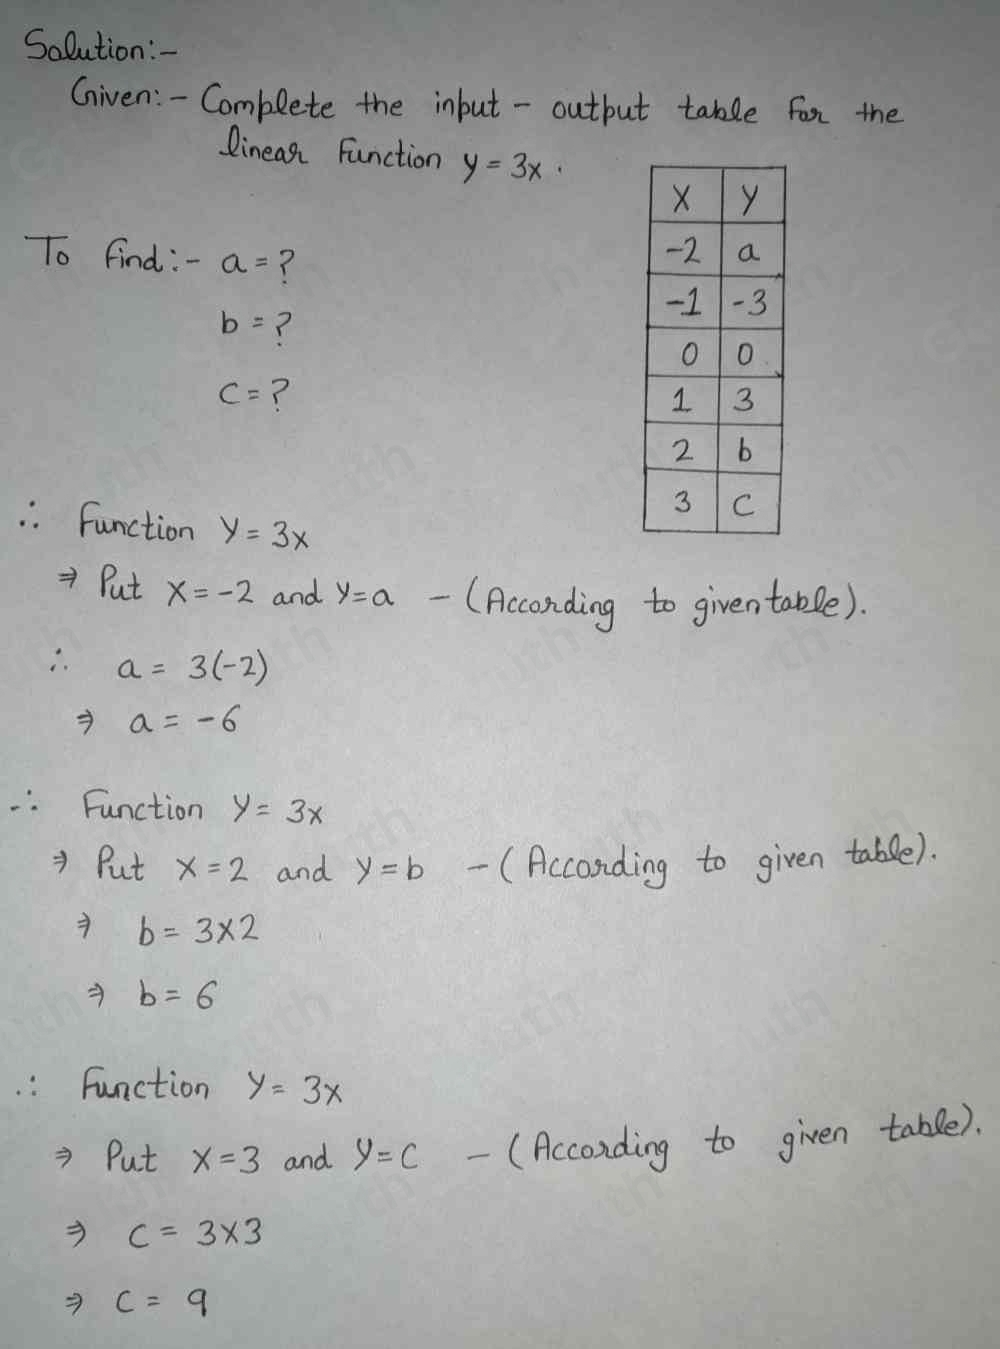 Solution:-
Given:- Complete the input - output table for the
linear function y = 3x.
x y
-2 a
-1 -3
0 0
1 3
2 b
3 c
To find:- a = ?
b = ?
c = ?
∴ Function y = 3x
⇒ Put x = -2 and y = a - (According to given table).
∴ a = 3(-2)
⇒ a = -6
∴ Function y = 3x
⇒ Put x = 2 and y = b - (According to given table).
⇒ b = 3×2
⇒ b = 6
∴ Function y = 3x
⇒ Put x = 3 and y = c - (According to given table).
⇒ c = 3×3
⇒ c = 9